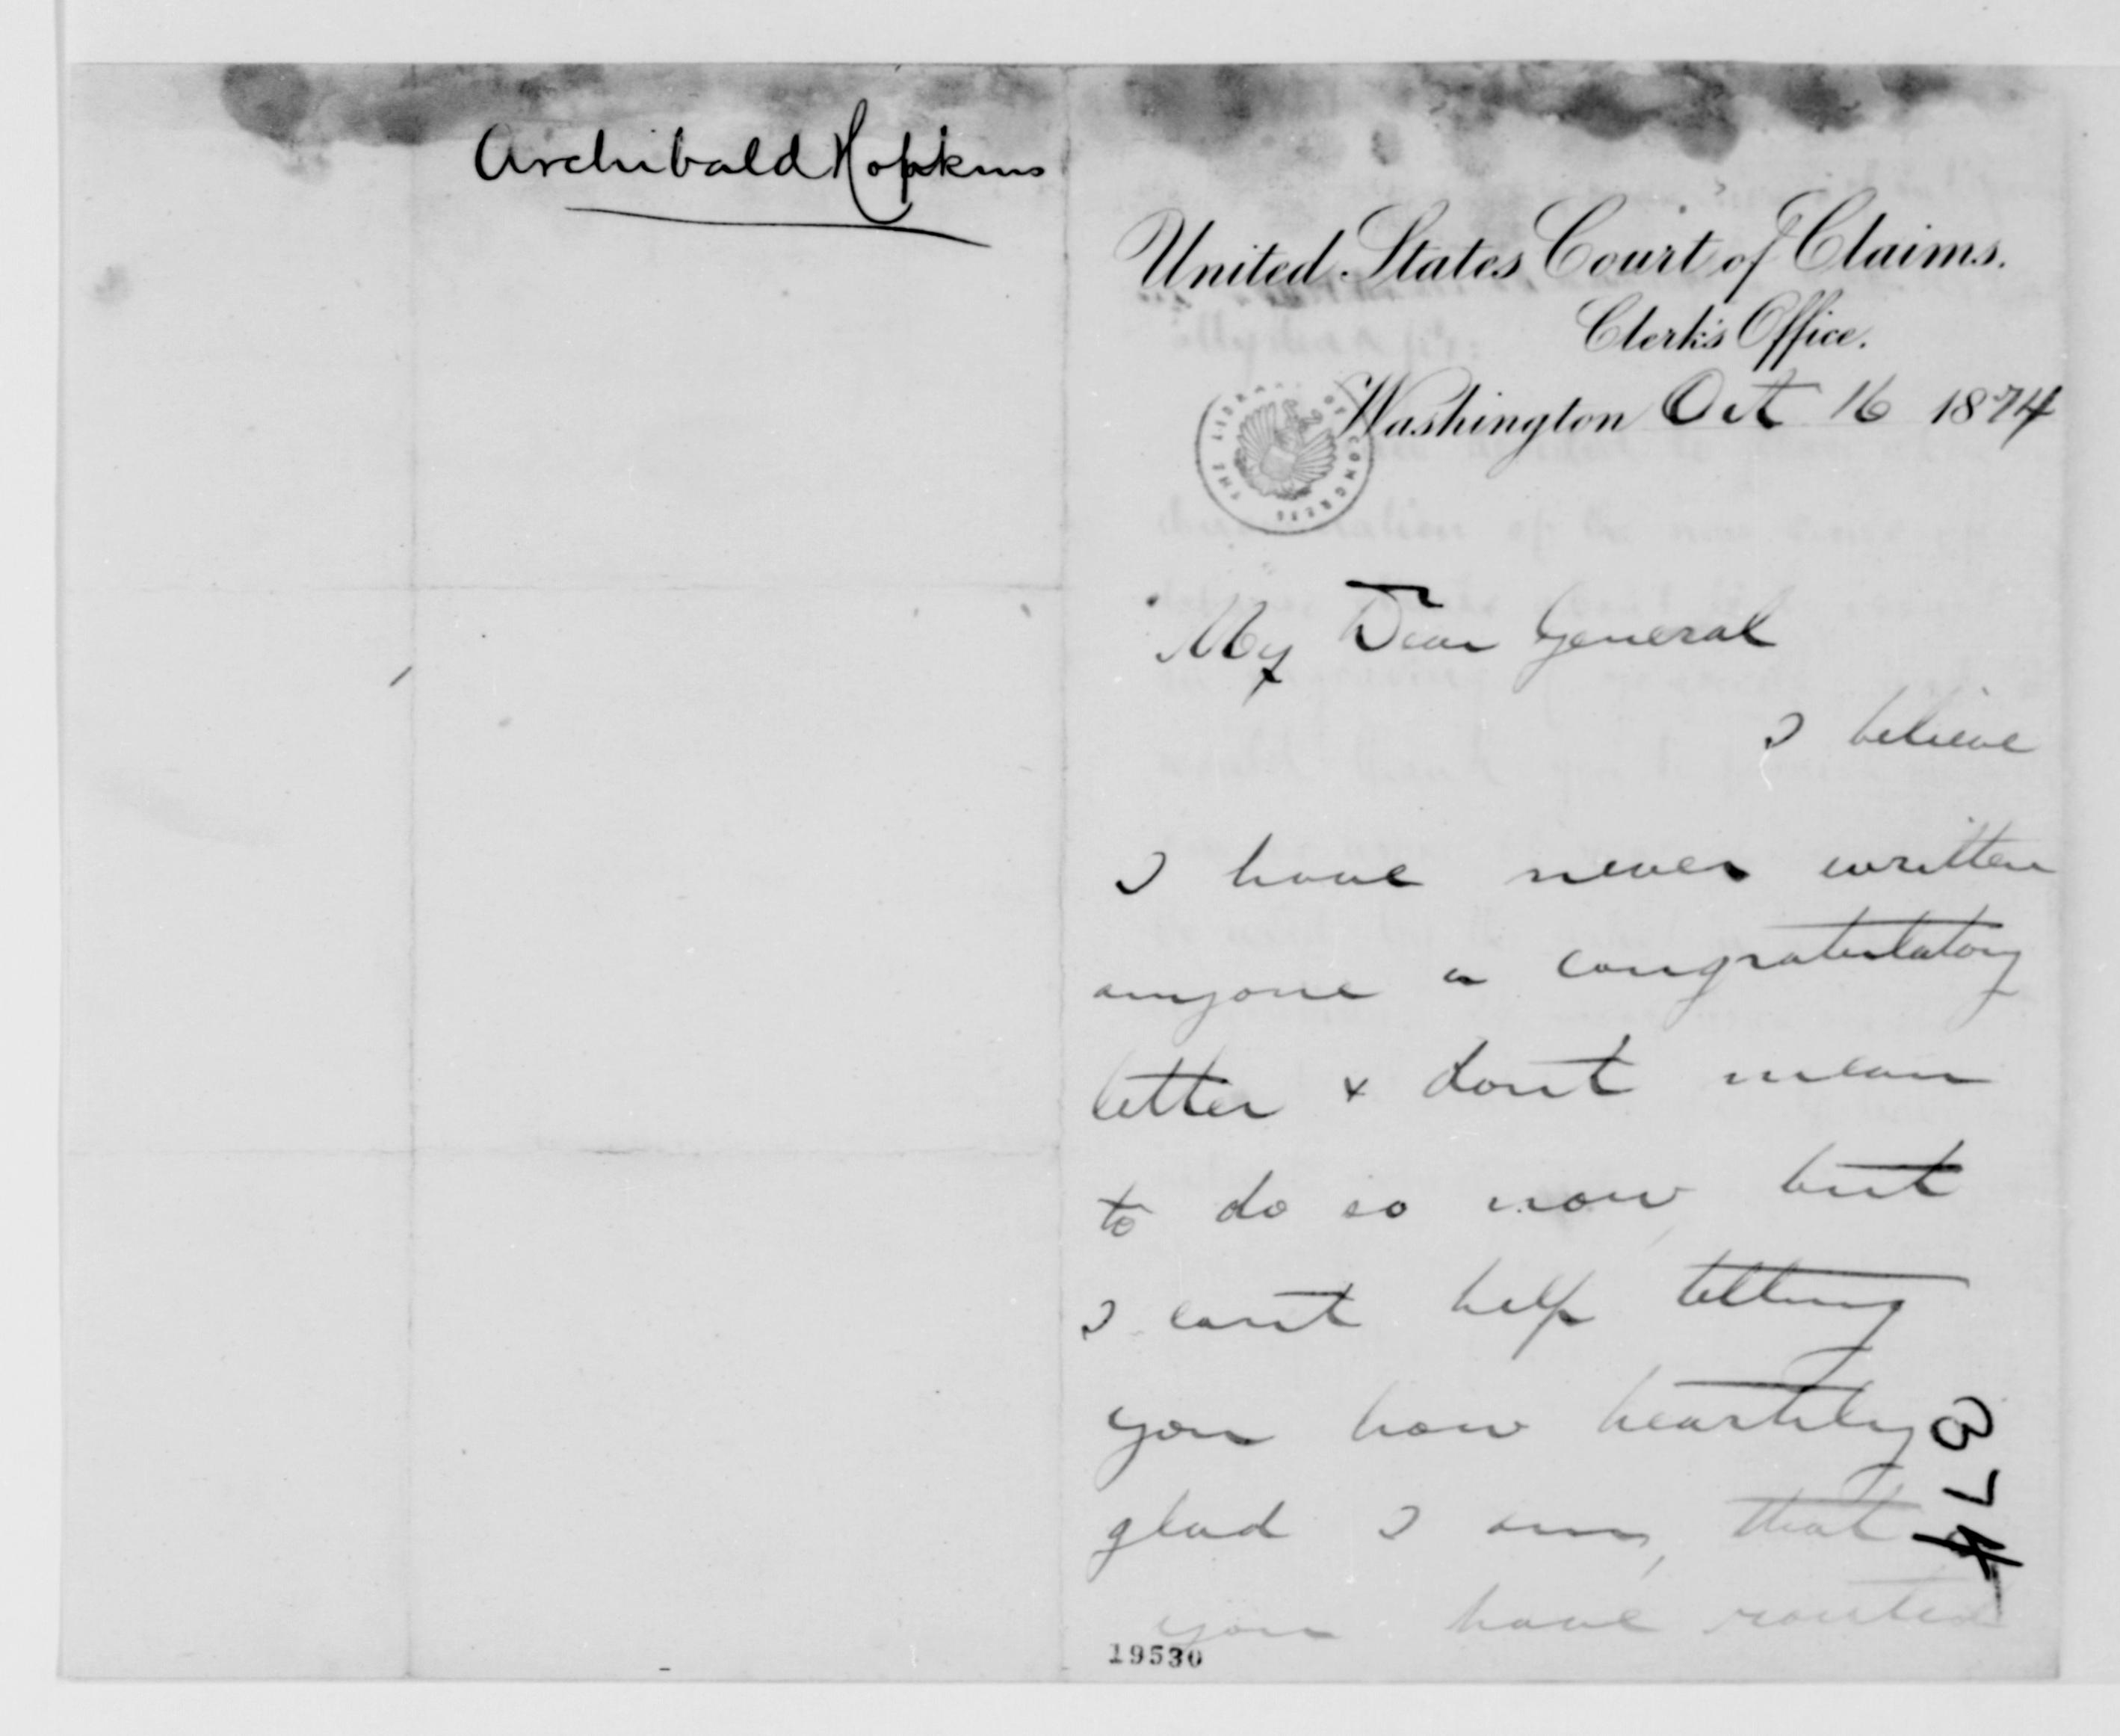 Archibald Hopkins
United States Court of Claims.
Clerk's Office.
Washington Oct 16 1874
THE LIBRARY OF CONGRESS
My Dear General
I believe
I have never written
anyone a congratulatory
letter & dont mean
to do so now, but
I cant help telling
you how heartily
glad I am, that
you have routed
374
19530